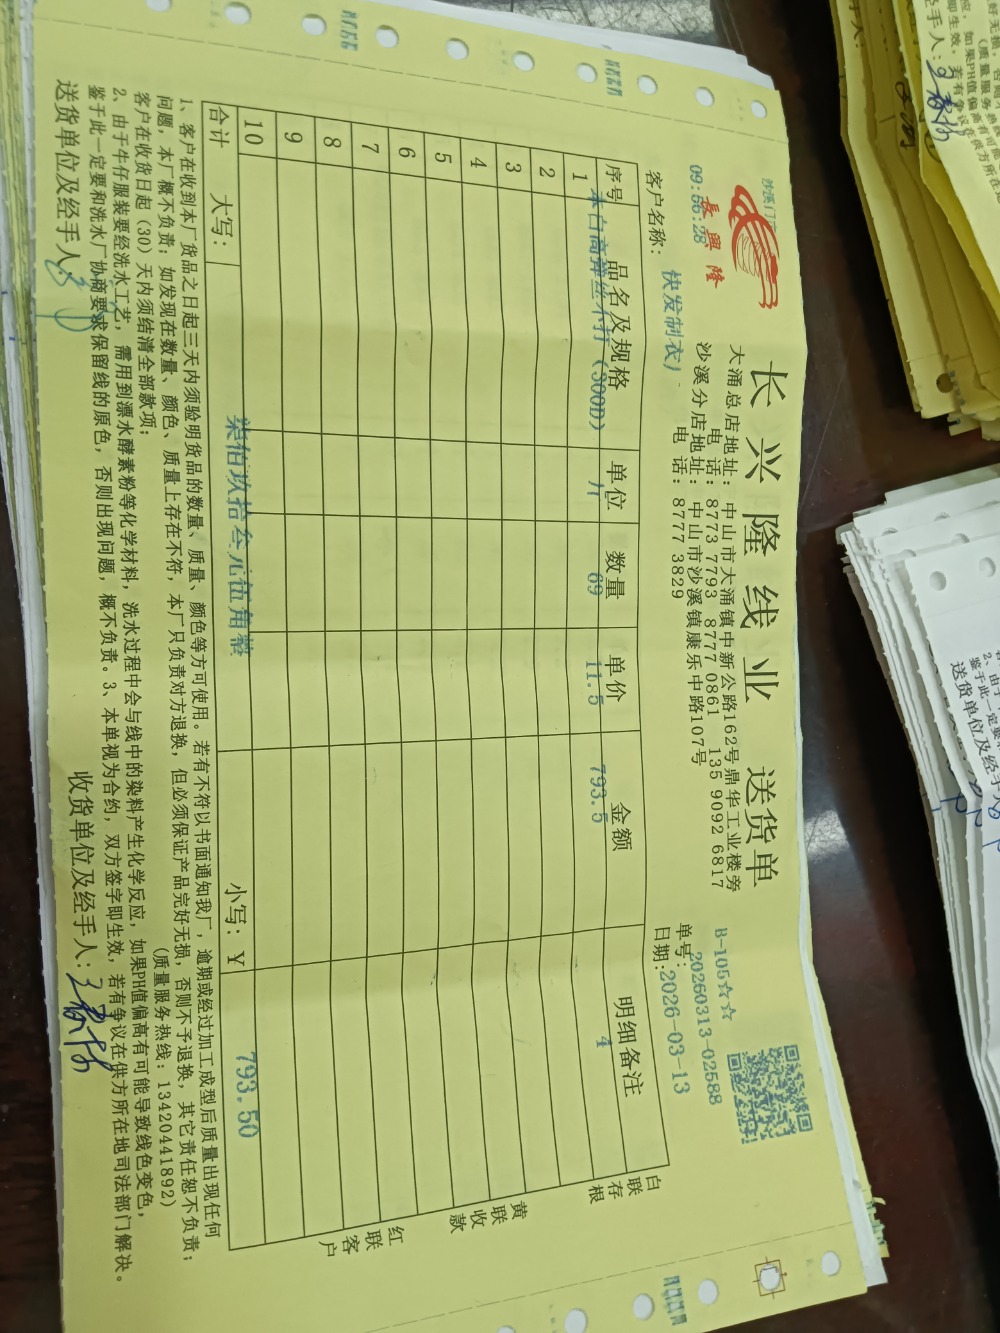 沙溪门市
09:56:28
長興隆
长兴隆线业 送货单
大涌总店地址: 中山市大涌镇中新公路162号鼎华工业楼旁
电 话: 8773 7793 8777 0861 135 9092 6817
沙溪分店地址: 中山市沙溪镇康乐中路107号
电 话: 8777 3829
B-105☆☆
单号: 20260313-02588
日期: 2026-03-13
客户名称: 快发制衣厂
序号 品名及规格 单位 数量 单价 金额 明细备注
1 本白高弹丝不打(300D) 个 69 11.5 793.5 4
2
3
4
5
6
7
8
9
10
合计 大写: 柒佰玖拾叁元伍角整 小写: ¥ 793.50
白联存根
黄联收款
红联客户
1、客户在收到本厂货品之日起三天内须验明货品的数量、质量、颜色等方可使用。若有不符以书面通知我厂, 逾期或经过加工成型后质量出现任何
问题, 本厂概不负责; 如发现在数量、颜色、质量上存在不符, 本厂只负责对方退换, 但必须保证产品完好无损, 否则不予退换, 其它责任恕不负责;
客户在收货日起 (30) 天内须结清全部款项;
(质量服务热线: 13420441892)
2、由于牛仔服装要经洗水工艺, 需用到漂水酵素粉等化学材料, 洗水过程中会与线中的染料产生化学反应, 如果PH值偏高有可能导致线色变色,
鉴于此一定要和洗水厂协商要求保留线的原色, 否则出现问题, 概不负责。3、本单视为合约, 双方签字即生效, 若有争议在供方所在地司法部门解决。
送货单位及经手人:
收货单位及经手人: